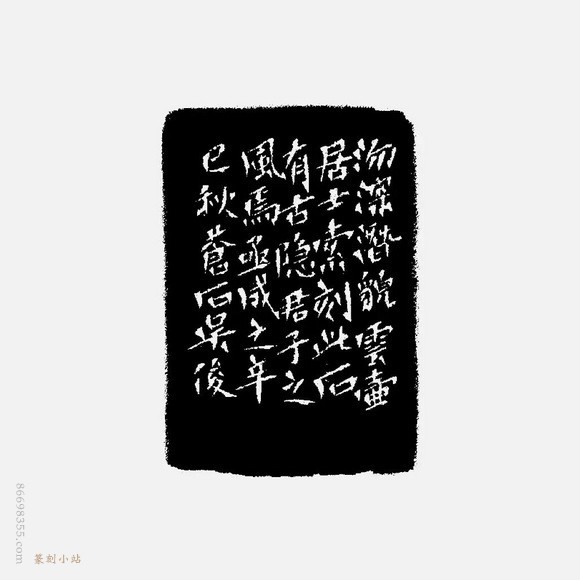 沕深潛貌雲壺
居士索刻此石
有古隐君子之
風焉亟成之辛
巳秋蒼石吴俊
86698355.com
篆刻小站